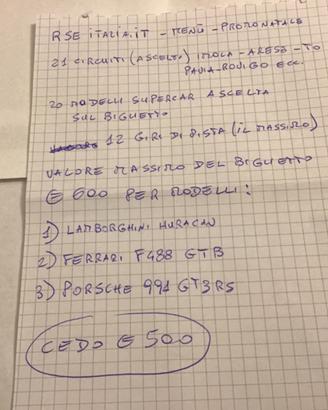 RSE ITALIA.IT - MENÙ - PROMONATALE
21 CIRCUITI (ASCELTA) IMOLA - ARESE - TO
PAVIA - ROVIGO ECC.
20 MODELLI SUPERCAR ASCELTA
SUL BIGLIETTO
12 GIRI DI PISTA (IL MASSIMO)
VALORE MASSIMO DEL BIGLIETTO
€ 600 PER MODELLI:
1) LAMBORGHINI HURACAN
2) FERRARI F488 GTB
3) PORSCHE 991 GT3RS
CEDO € 500